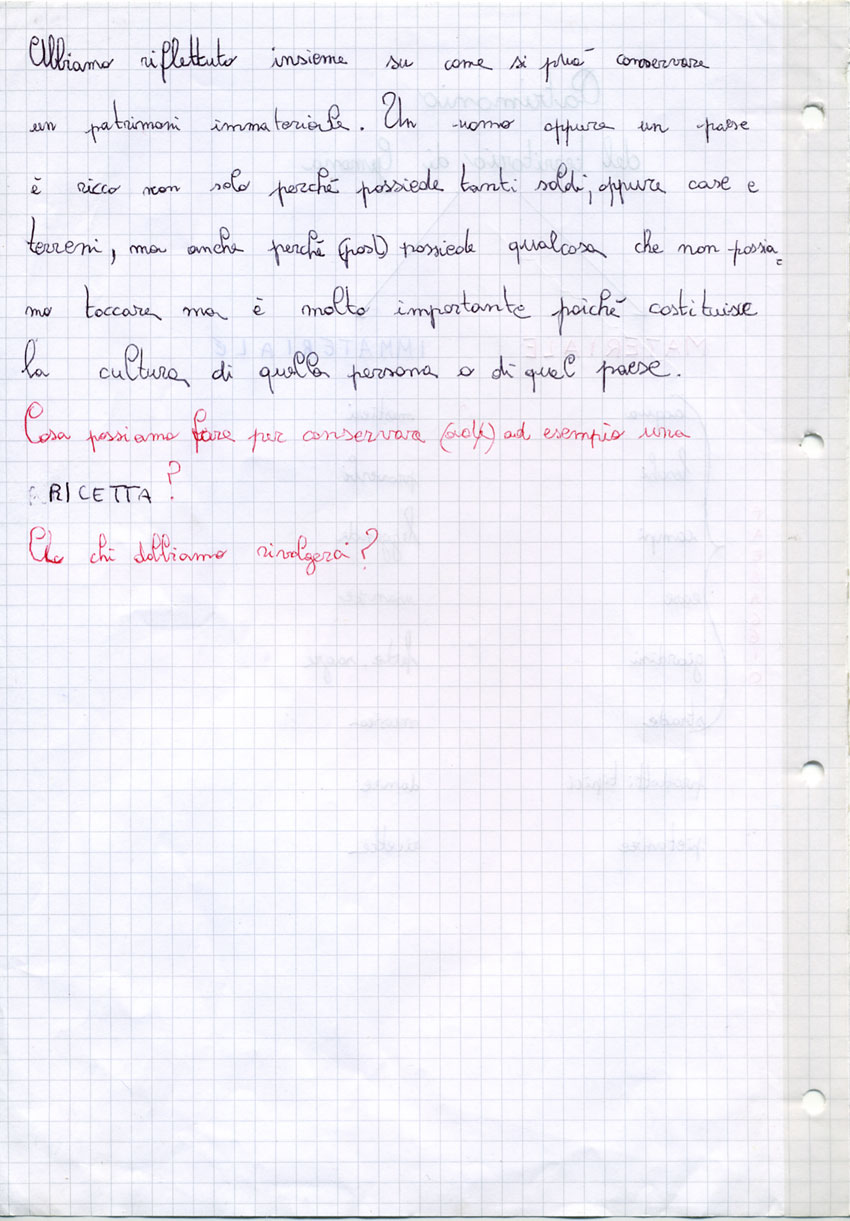 Abbiamo riflettuto insieme su come si può conservare
un patrimoni immateriale. Un uomo oppure un paese
è ricco non solo perché possiede tanti soldi, oppure case e
terreni, ma anche perché (post) possiede qualcosa che non possia=
mo toccare ma è molto importante poiché costituisce
la cultura di quella persona o di quel paese.
Cosa possiamo fare per conservare ad esempio una
RICETTA?
A chi dobbiamo rivolgerci?